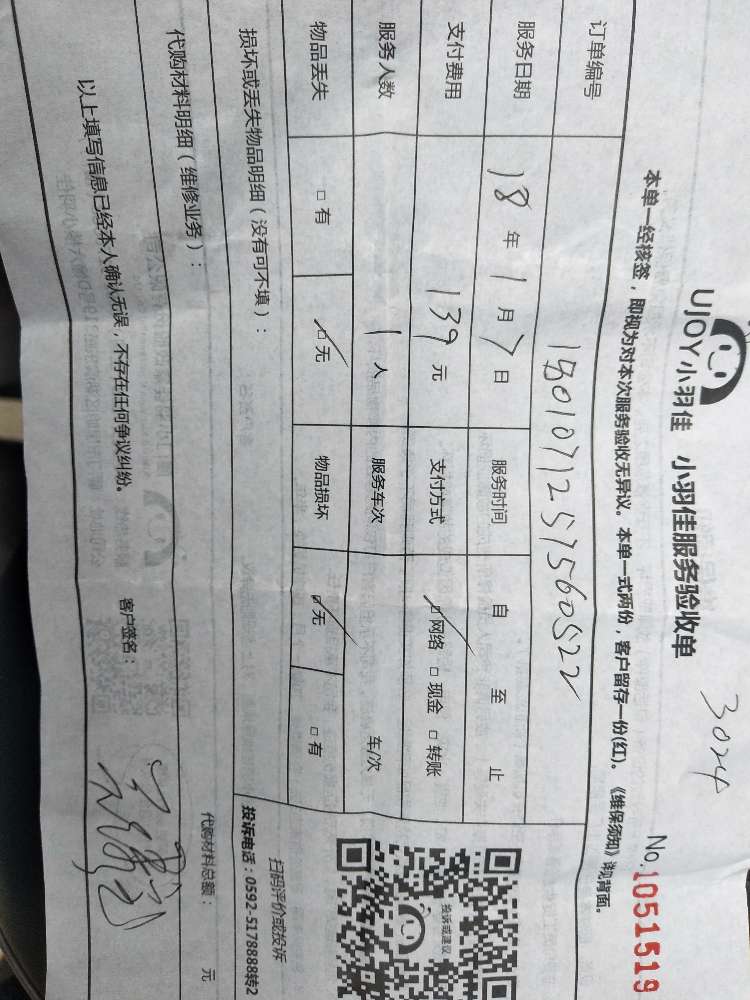 3024
UJOY小羽佳 小羽佳服务验收单
No.1051519
本单一经核签，即视为对本次服务验收无异议。本单一式两份，客户留存一份(红)。《维保须知》详见背面。
订单编号
服务日期 18年1月7日 服务时间 自 至 止
支付费用 139元 支付方式 ☑网络 □现金 □转账
服务人数 1人 服务车次 车/次
物品丢失 □有 ☑无 物品损坏 ☑无 □有
损坏或丢失物品明细（没有可不填）：
代购材料明细（维修业务）：
代购材料总额： 元
以上填写信息已经本人确认无误，不存在任何争议纠纷。 客户签名：
投诉或建议
扫码评价或投诉
投诉电话：0592-5178888转2